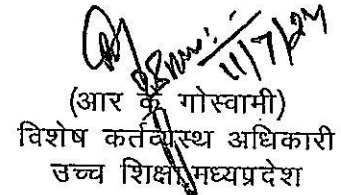 11/7/24
(आर के गोस्वामी)
विशेष कर्तव्यस्थ अधिकारी
उच्च शिक्षा मध्यप्रदेश